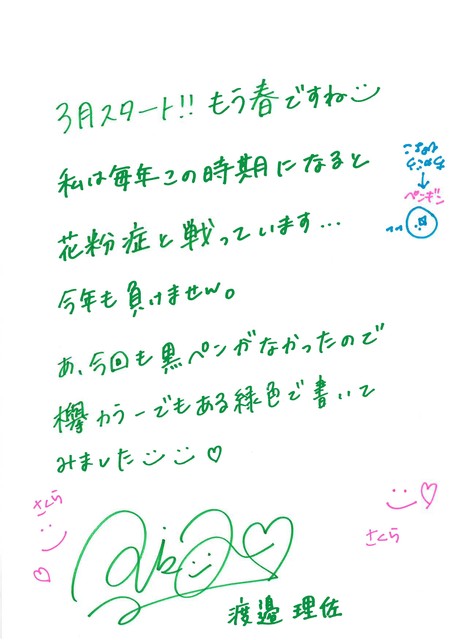 3月スタート!! もう春ですね
私は毎年この時期になると
花粉症と戦っています...
今年も負けませんw。
あ、今回も黒ペンがなかったので
欅カラーでもある緑色で書いて
みました♡
ペンギン
さくら
さくら
渡邉 理佐